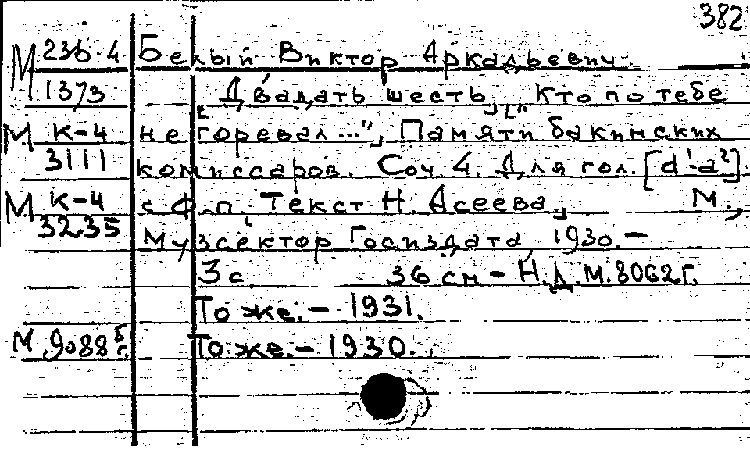 382
М 236-4 Белый Виктор Аркадьевич.
1373 [Двадцать шесть], ["Кто по тебе
М К-4 не горевал..."], Памяти бакинских
3111 комиссаров. Соч. 4. Для гол. [d¹-a²].
М К-4 с ф.-п., Текст Н. Асеева, М.,
3235 Музсектор Госиздата, 1930.-
3 с 36 см - Н.Д.М.8062г.
То же.- 1931.
М.9088 б/г. То же.- 1930.